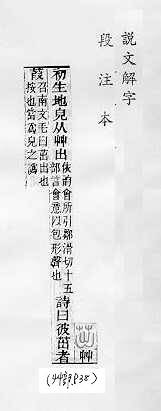 說文解字
段注本
茁 艸
初生地皃从艸出依韵會所引鄒滑切十五部言會意以包形聲也詩曰彼茁者
葭召南文毛曰茁出也按也當爲皃之譌